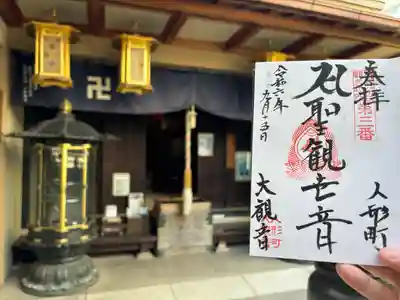 奉拝
第三番
人形町
聖観世音
大観音
人形町
令和六年
卍